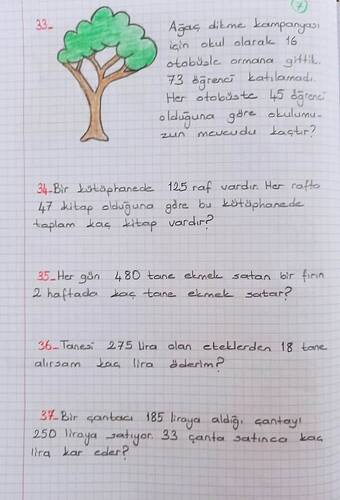 7
33_ Ağaç dikme kampanyası
için okul olarak 16
otobüsle ormana gittik.
73 öğrenci katılamadı.
Her otobüste 45 öğrenci
olduğuna göre okulumu-
zun mevcudu kaçtır?
34_ Bir kütüphanede 125 raf vardır. Her rafta
47 kitap olduğuna göre bu kütüphanede
toplam kaç kitap vardır?
35_ Her gün 480 tane ekmek satan bir fırın
2 haftada kaç tane ekmek satar?
36_ Tanesi 275 lira olan eteklerden 18 tane
alırsam kaç lira öderim?
37_ Bir çantacı 185 liraya aldığı çantayı
250 liraya satıyor. 33 çanta satınca kaç
lira kar eder?